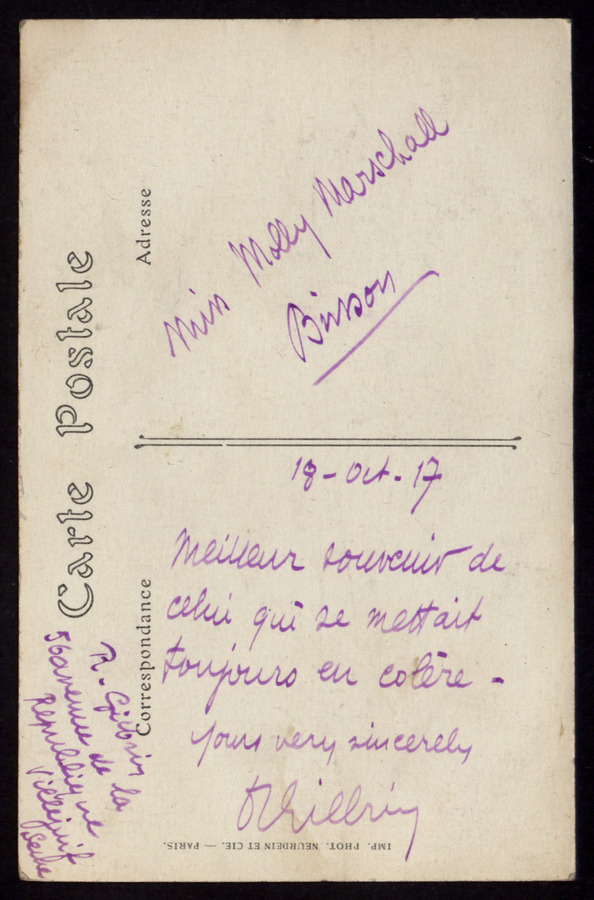 Carte Postale
Correspondance
Adresse
Miss Molly Marschall
18-Oct-17
Meilleur souvenir de
celui qui se mettait
toujours en colère -
yours very sincerely
R.
56 avenue de la
République
Villejuif
Seine
IMP. PHOT. NEURDEIN ET CIE. — PARIS.